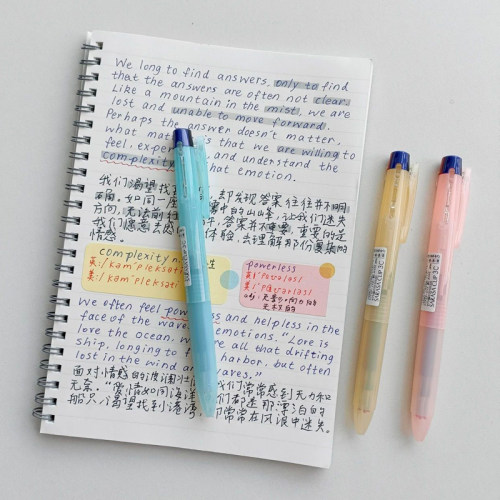 We long to find answers, only to find
that the answers are often not clear.
Like a mountain in the mist, we are
lost and unable to move forward.
Perhaps the answer doesn't matter,
what mat s that we are willing to
feel, exper , and understand the
complexity that emotion.
我们渴望找 却发现答案往往并不明
晰。如同一座 中的山峰，让我们迷失
方向，无法前行 许，答案并不重要，重要的是
我们愿意去感 体验，去理解那份复杂的
情感。
complexity n. 性
英/kəmˈpleksəti
美/kəmˈpleksəti
powerless
英/ˈpaʊələs/
美/ˈpaʊərləs/
We often feel powe ss and helpless in the
face of the wave emotions. "Love is
love the ocean, w re all that drifting
ship, longing to f harbor, but often
lost in the wind an waves."
面对情感的波澜壮 我们常常感到无力和
无奈。"爱情如同海洋 们都是那漂泊的
船只，渴望找到港湾 却常常在风浪中迷失。